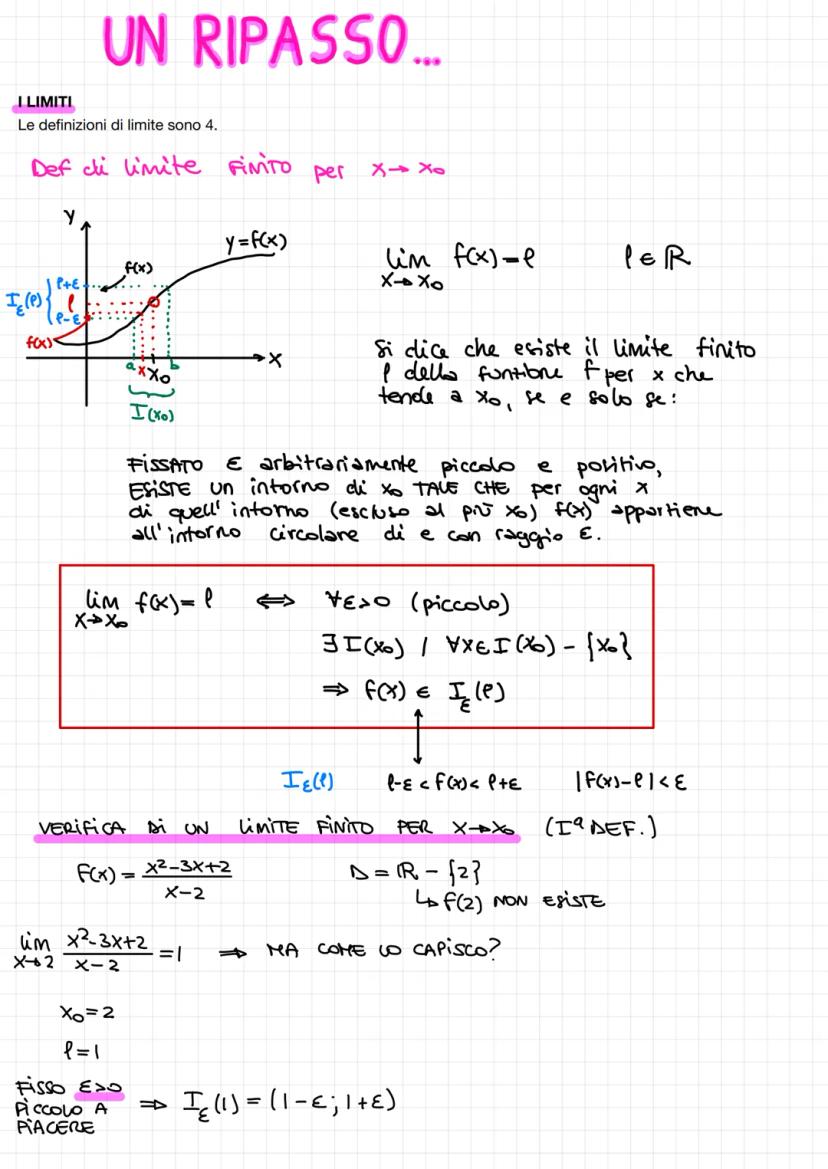 UN RIPASSO...
I LIMITI
Le definizioni di limite sono 4.
Def di limite FINITO per x→x₀
y
y=f(x)
f(x)
I_ε(ℓ)
ℓ+ε
ℓ
ℓ-ε
f(x)
a x x₀ b
x
I(x₀)
lim f(x)=ℓ ℓ∈ℝ
x→x₀
Si dice che esiste il limite finito
ℓ della funzione f per x che
tende a x₀, se e solo se:
FISSATO ε arbitrariamente piccolo e positivo,
ESISTE un intorno di x₀ TALE CHE per ogni x
di quell'intorno (escluso al più x₀) f(x) appartiene
all'intorno circolare di ℓ con raggio ε.
lim f(x)=ℓ ⟺ ∀ε>0 (piccolo)
x→x₀
∃ I(x₀) / ∀x∈I(x₀) - {x₀}
⇒ f(x) ∈ I_ε(ℓ)
I_ε(ℓ) ℓ-ε < f(x) < ℓ+ε |f(x)-ℓ|<ε
VERIFICA DI UN LIMITE FINITO PER x→x₀ (Iª DEF.)
f(x) = x²-3x+2 / x-2 D = ℝ - {2}
↳ f(2) NON ESISTE
lim x²-3x+2 / x-2 = 1 ⇒ MA COME LO CAPISCO?
x→2
x₀=2
ℓ=1
FISSO ε>0
PICCOLO A ⇒ I_ε(1) = (1-ε; 1+ε)
PIACERE